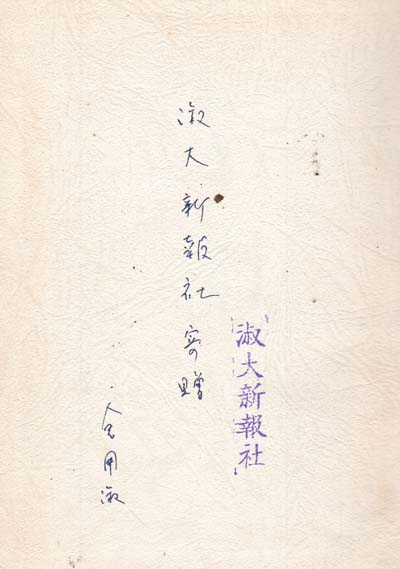 淑大新報社
淑大新報社寄贈
金用淑